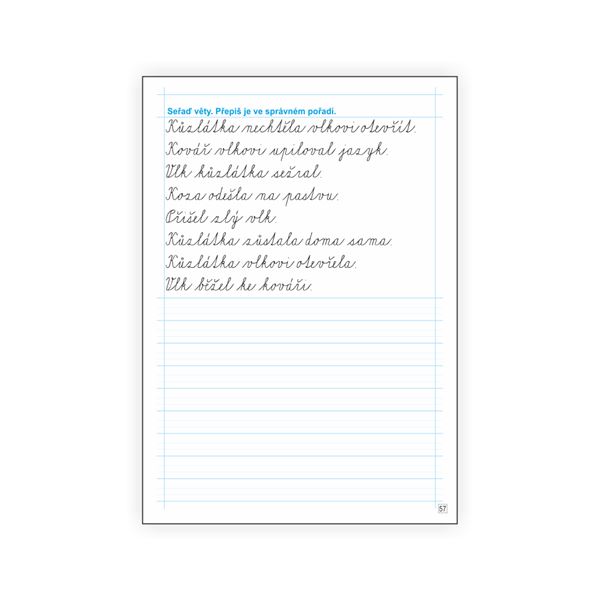 Seřaď věty. Přepiš je ve správném pořadí.
Kůzlátka nechtěla vlkovi otevřít.
Kovář vlkovi upiloval jazyk.
Vlk kůzlátka sežral.
Koza odešla na pastvu.
Přišel zlý vlk.
Kůzlátka zůstala doma sama.
Kůzlátka vlkovi otevřela.
Vlk běžel ke kováři.
57